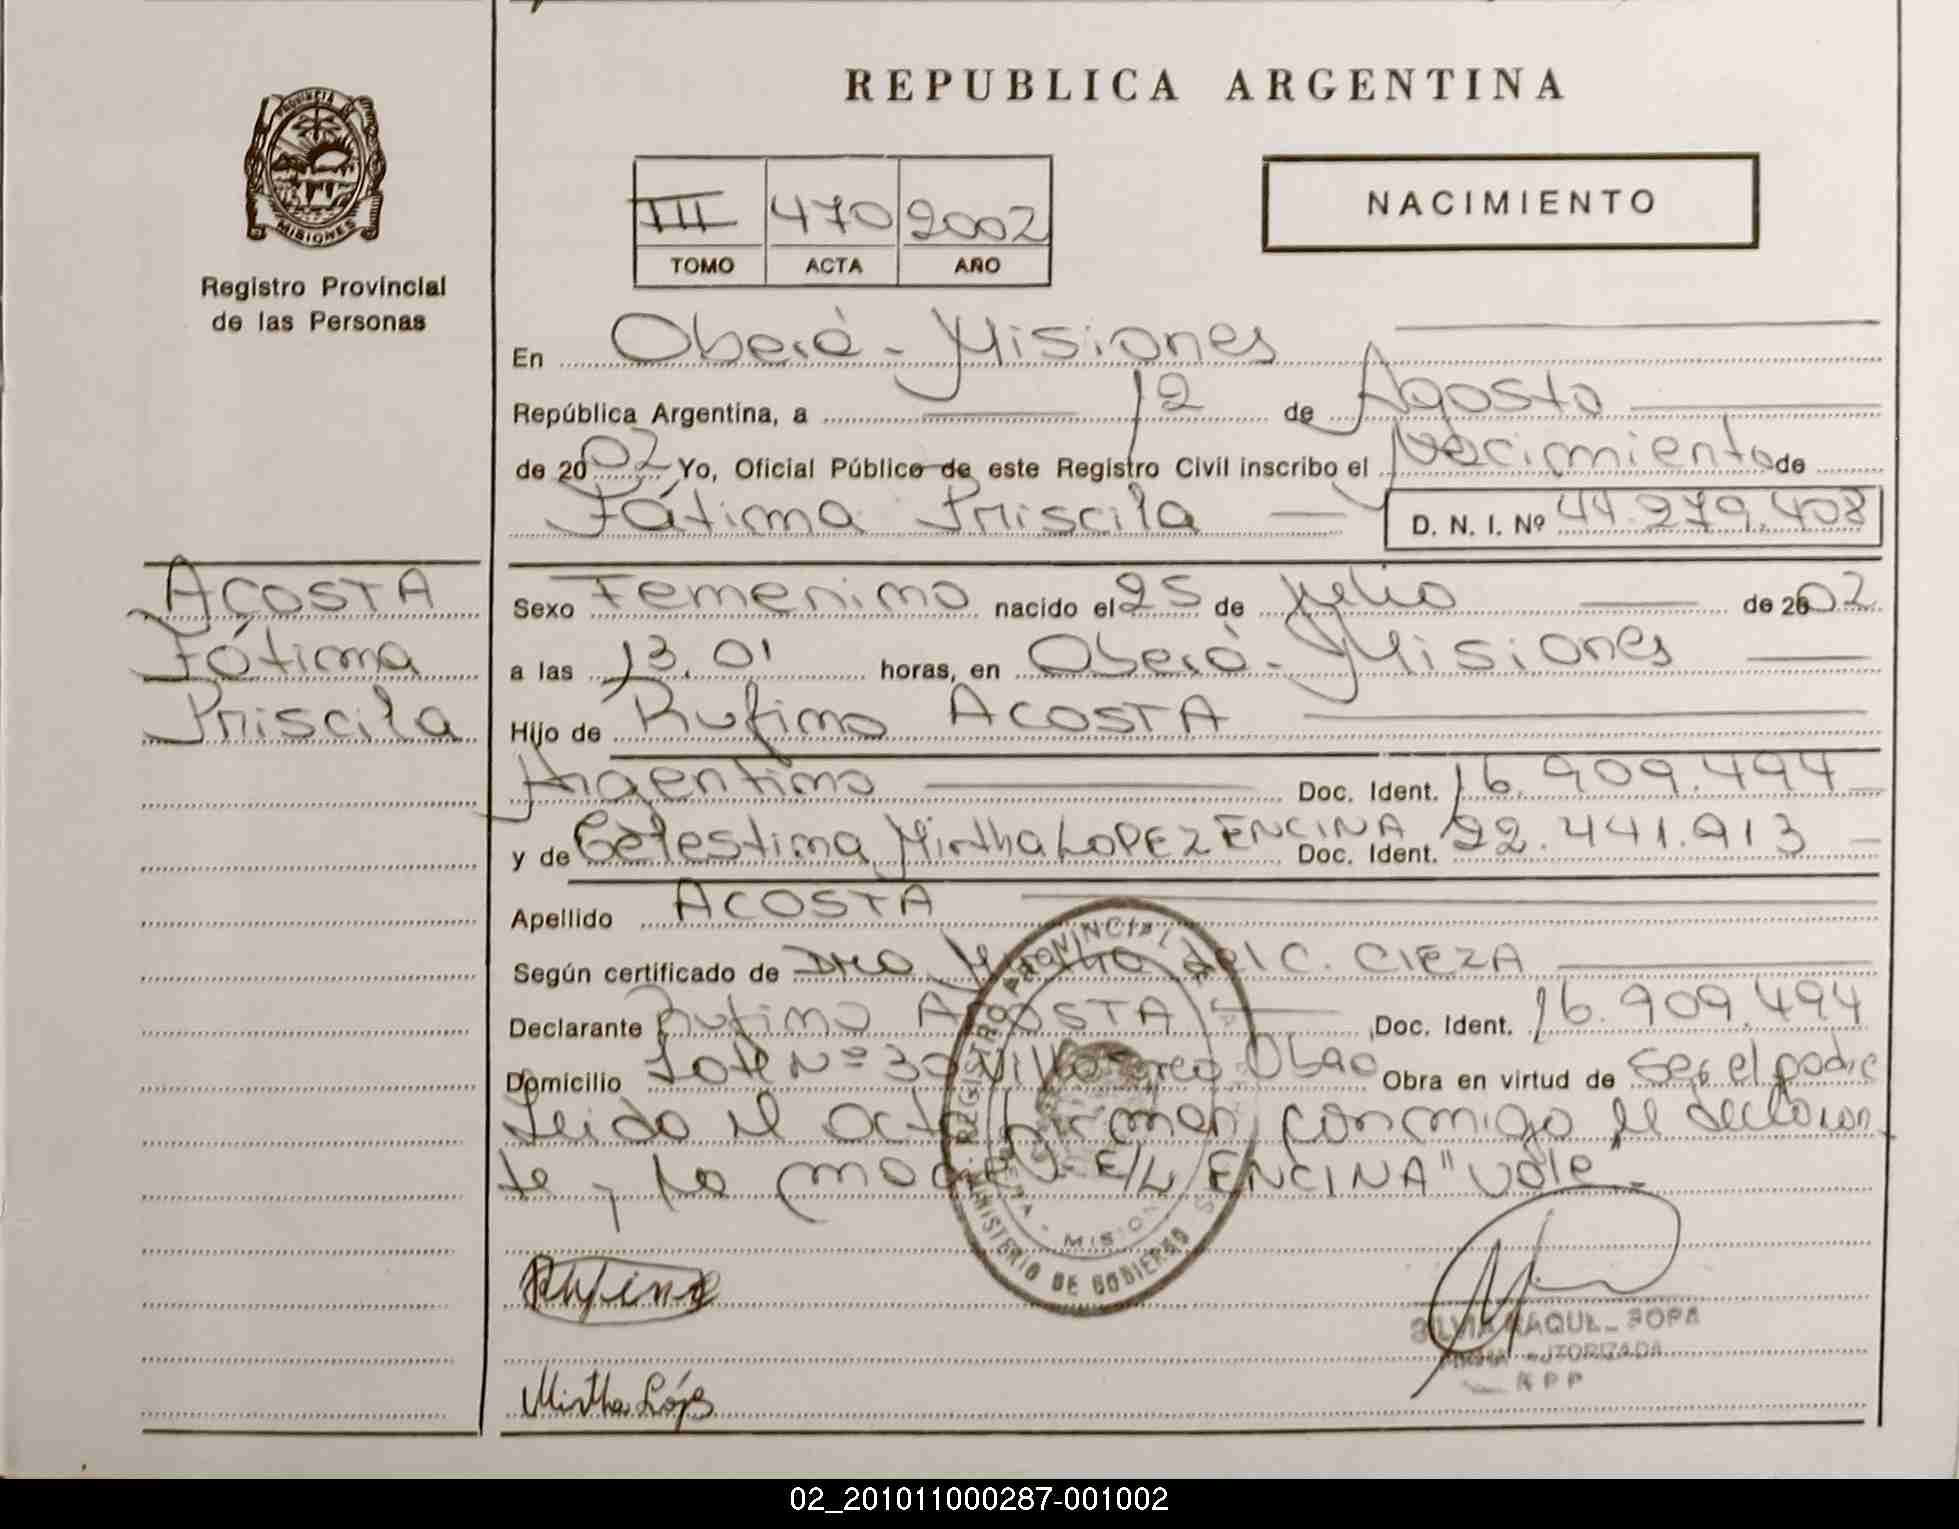 REPUBLICA ARGENTINA
PROVINCIA
MISIONES
Registro Provincial
de las Personas
III 470 2002
TOMO ACTA AÑO
NACIMIENTO
En Oberá - Misiones
República Argentina, a 12 de Agosto
de 2002 Yo, Oficial Público de este Registro Civil inscribo el Nacimiento de
Fátima Priscila D. N. I. Nº 44.279.408
ACOSTA
Fátima
Priscila
Sexo Femenino nacido el 25 de Julio de 2002
a las 13.01 horas, en Oberá - Misiones
Hijo de Rufino ACOSTA
Argentino Doc. Ident. 16.909.494
y de Celestina Mirtha LOPEZ ENCINA Doc. Ident. 22.441.913
Apellido ACOSTA
Según certificado de Dra del C. CIEZA
Declarante Rufino ACOSTA Doc. Ident. 16.909.494
Domicilio Lote Nº 30 Villa Obra en virtud de ser el padre
Leida el acta firman conmigo el declaran
te y la madre. E/L ENCINA "Vale".
REGISTRO PROVINCIAL
MINISTERIO DE GOBIERNO
Rufino
SILVIA RAQUEL
AUTORIZADA
RPP
Mirtha López
02_201011000287-001002